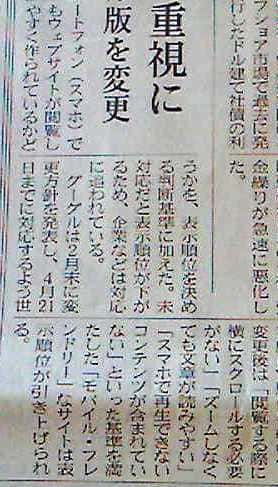 フショア市場で過去に発
行したドル建て社債の利
金繰りが急速に悪化し
た。
重視に
版を変更
ートフォン（スマホ）で
もウェブサイトが閲覧し
やすく作られているかど
うかを、表示順位を決め
る判断基準に加えた。未
対応だと表示順位が下が
るため、企業などは対応
に追われている。
グーグルは2月末に変
更方針を発表し、4月21
日までに対応するよう世
変更後は、「閲覧する際に
横にスクロールする必要
がない」「ズームしなく
ても文章が読みやすい」
「スマホで再生できない
コンテンツが含まれてい
ない」といった基準を満
たした「モバイル・フレ
ンドリー」なサイトは表
示順位が引き上げられ
る。